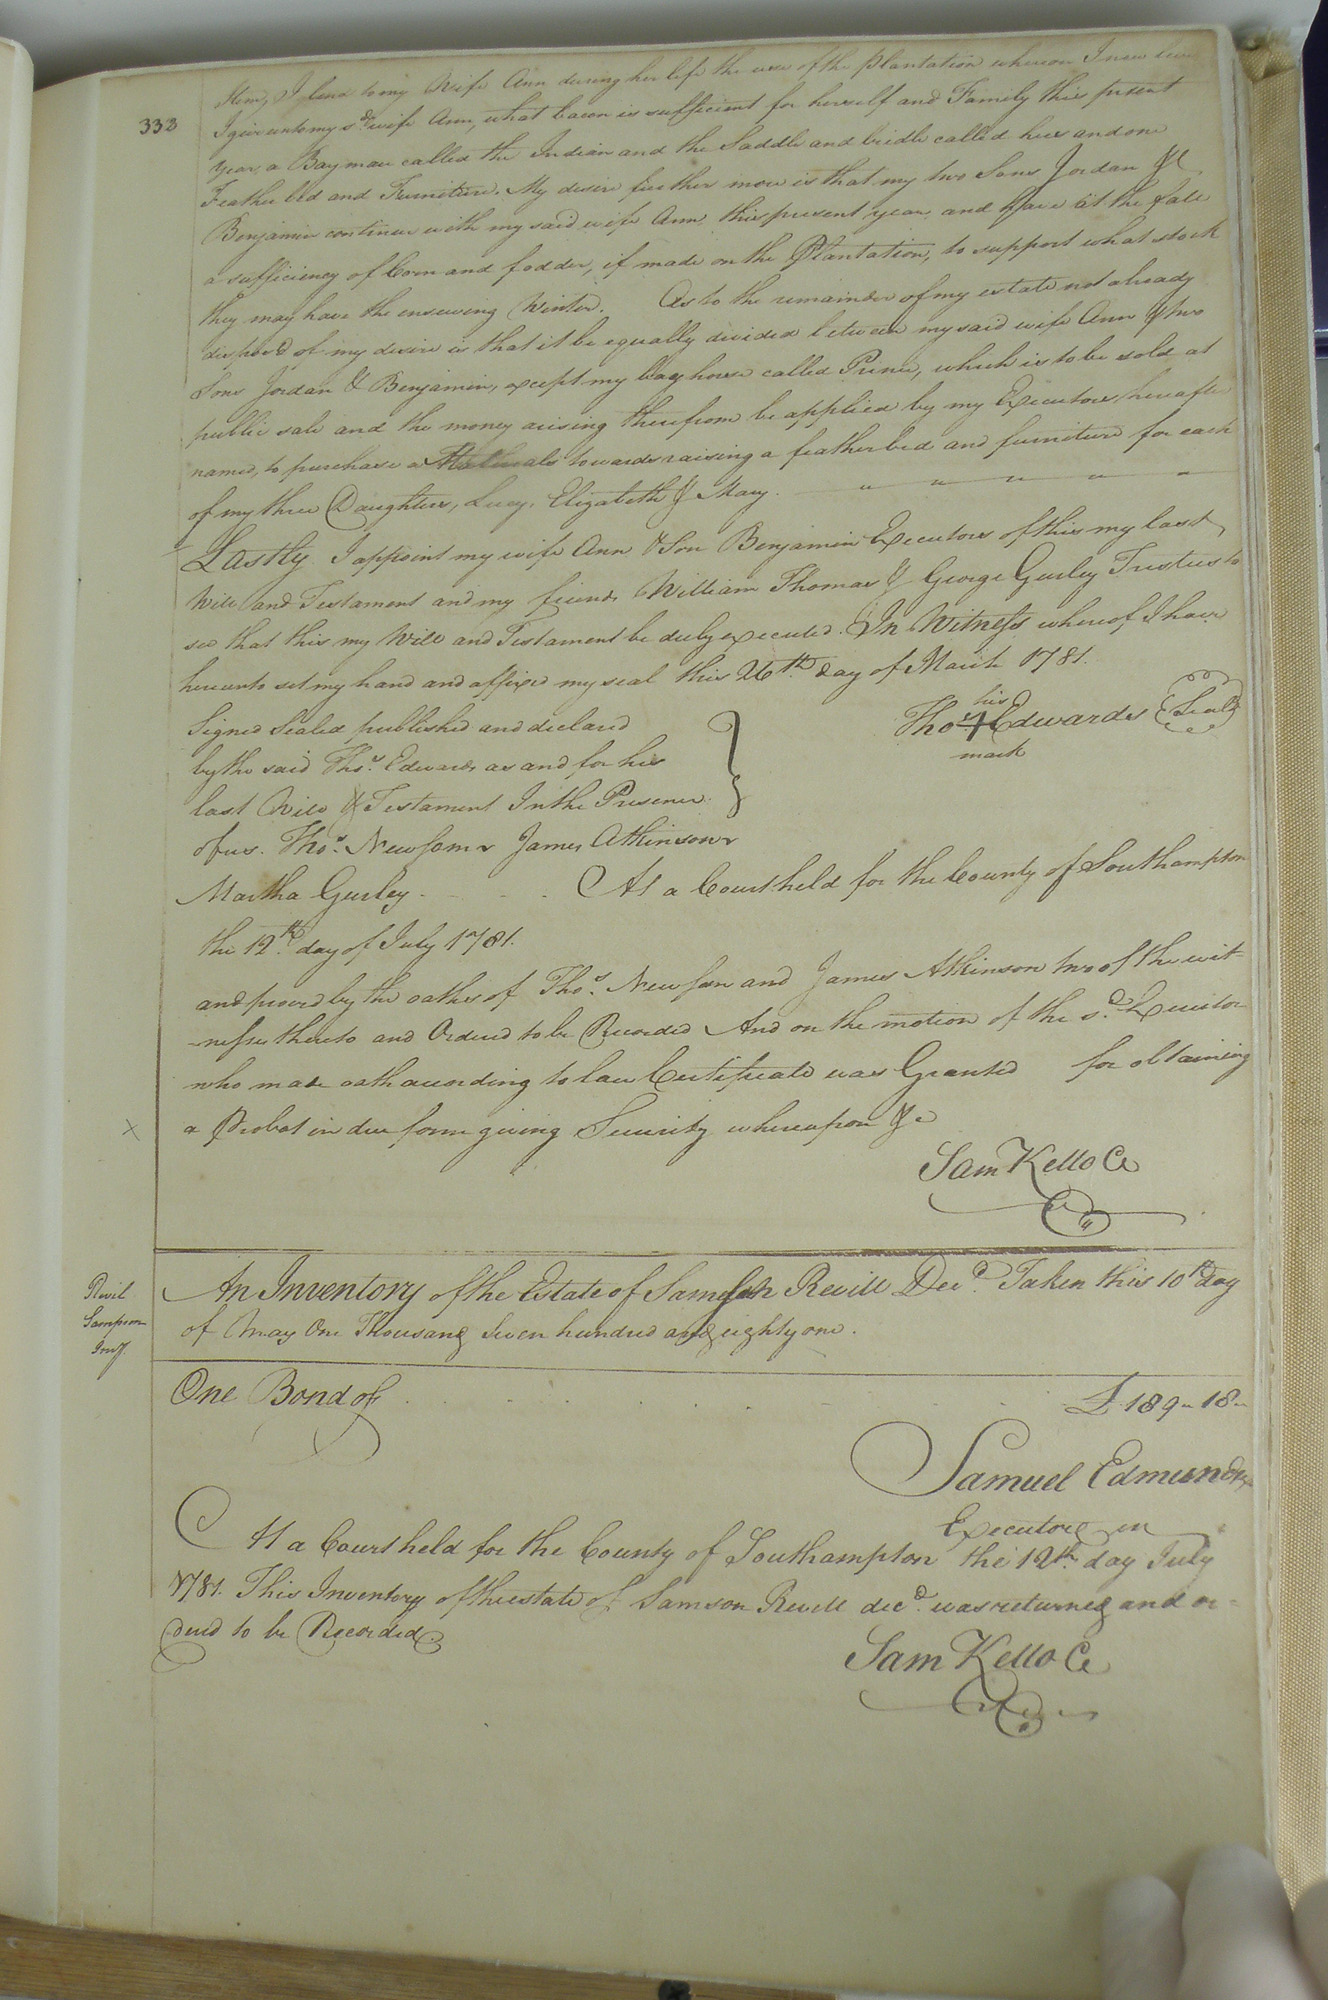 333
Item, I lend to my Wife Ann during her life the use of the Plantation whereon I now live
I give unto my sd. wife Ann, what bacon is sufficient for herself and Family this present
year, a Bay mare called the Indian and the Saddle and bridle called hers and one
Feather bed and Furniture. My desire further more is that my two Sons Jordan &
Benjamin continue with my said wife Ann this present year, and have at the fall
a sufficiency of Corn and fodder, if made on the Plantation, to support what stock
they may have the ensewing Winter. As to the remainder of my estate not already
dispos'd of my desire is that it be equally divided between my said wife Ann & two
Sons Jordan & Benjamin, except my bay horse called Prince, which is to be sold at
public sale and the money arising therefrom be applied by my Executors hereafter
named, to purchase towards raising a feather bed and furniture for each
of my three Daughters, Lucy, Elizabeth & Mary. " " " " "
Lastly I appoint my wife Ann & Son Benjamin Executors of this my last
Will and Testament and my friends William Thomas & George Gurley Trustees to
see that this my Will and Testament be duly executed. In Witness whereof I have
hereunto set my hand and affixed my seal this 26th day of March 1781.
his
Thos. + Edwards (Seal)
mark
Signed Sealed published and declared
by the said Thos. Edwards as and for his
last Will & Testament In the Presence
of us. Thos. Newsom James Atkinson
Martha Gurley. At a Court held for the County of Southampton
the 12th day of July 1781.
and proved by the oaths of Thos. Newsom and James Atkinson two of the wit-
-nesses thereto and Ordered to be Recorded And on the motion of the sd. Executor
who made oath according to law Certificate was Granted for obtaining
a Probat in due form giving Security whereupon &c
x
Sam Kello Cl
Revil
Sampson
Invy
An Inventory of the Estate of Samson Revill Decd. Taken this 10th day
of May One Thousand Seven hundred and eighty one.
One Bond of . . . . . . £ 189 " 18 "
Samuel Edmunds
Executor
At a Court held for the County of Southampton the 12th. day July
1781. This Inventory of the estate of Samson Revill decd. was returned and or-
dered to be Recorded.
Sam Kello Cl